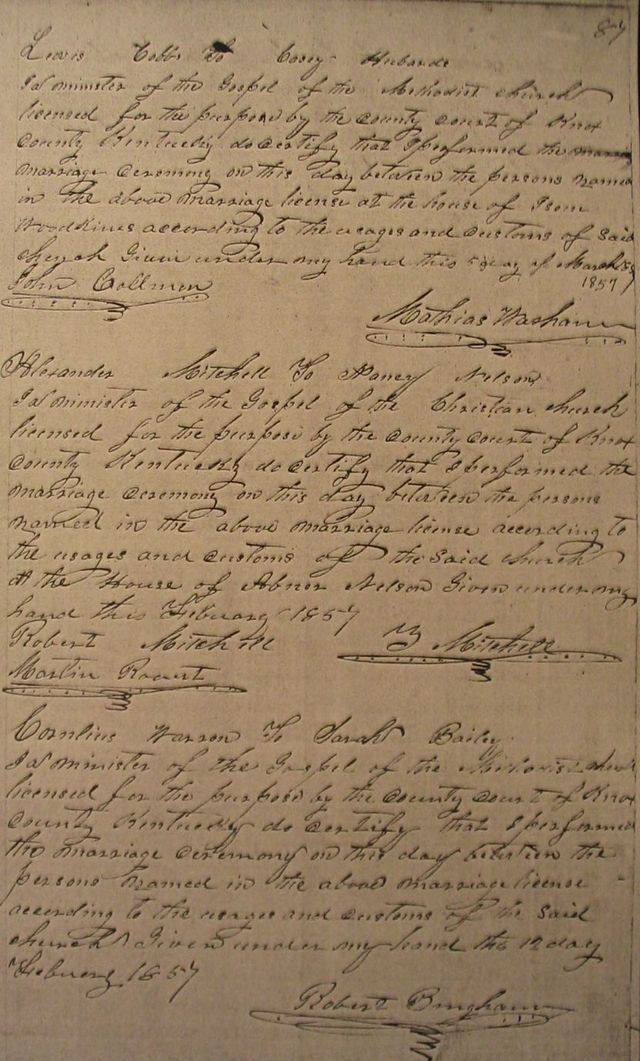 87
Lewis Cobbs To Cosey Hubards
I a minister of the Gospel of the Methodist church
licensed for the purpose by the county court of Knox
County Kentucky do certify that I performed the
marriage ceremony on this day between the persons named
in the above marriage license at the house of Isom
according to the usages and customs of said
Given under my hand this day of March
1857
John Collmen
Mathias
Alexander Mitchell To Nancy Nelson
I a minister of the Gospel of the Christian church
licensed for the purpose by the County court of Knox
County Kentucky do certify that I performed the
marriage ceremony on this day between the persons
named in the above marriage license according to
the usages and customs of the said church
At the House of Abner Nelson Given under my
hand this Febuary 1857
Robert Mitchell
Mitchell
Martin
Cornelius Warren To Sarah Bailey
I a minister of the Gospel of the
licensed for the purpose by the county court of Knox
County Kentucky do certify that I performed
the marriage ceremony on this day between the
persons named in the above marriage license
according to the usages and customs of the said
church Given under my hand the 12 day
1857
Robert Bingham